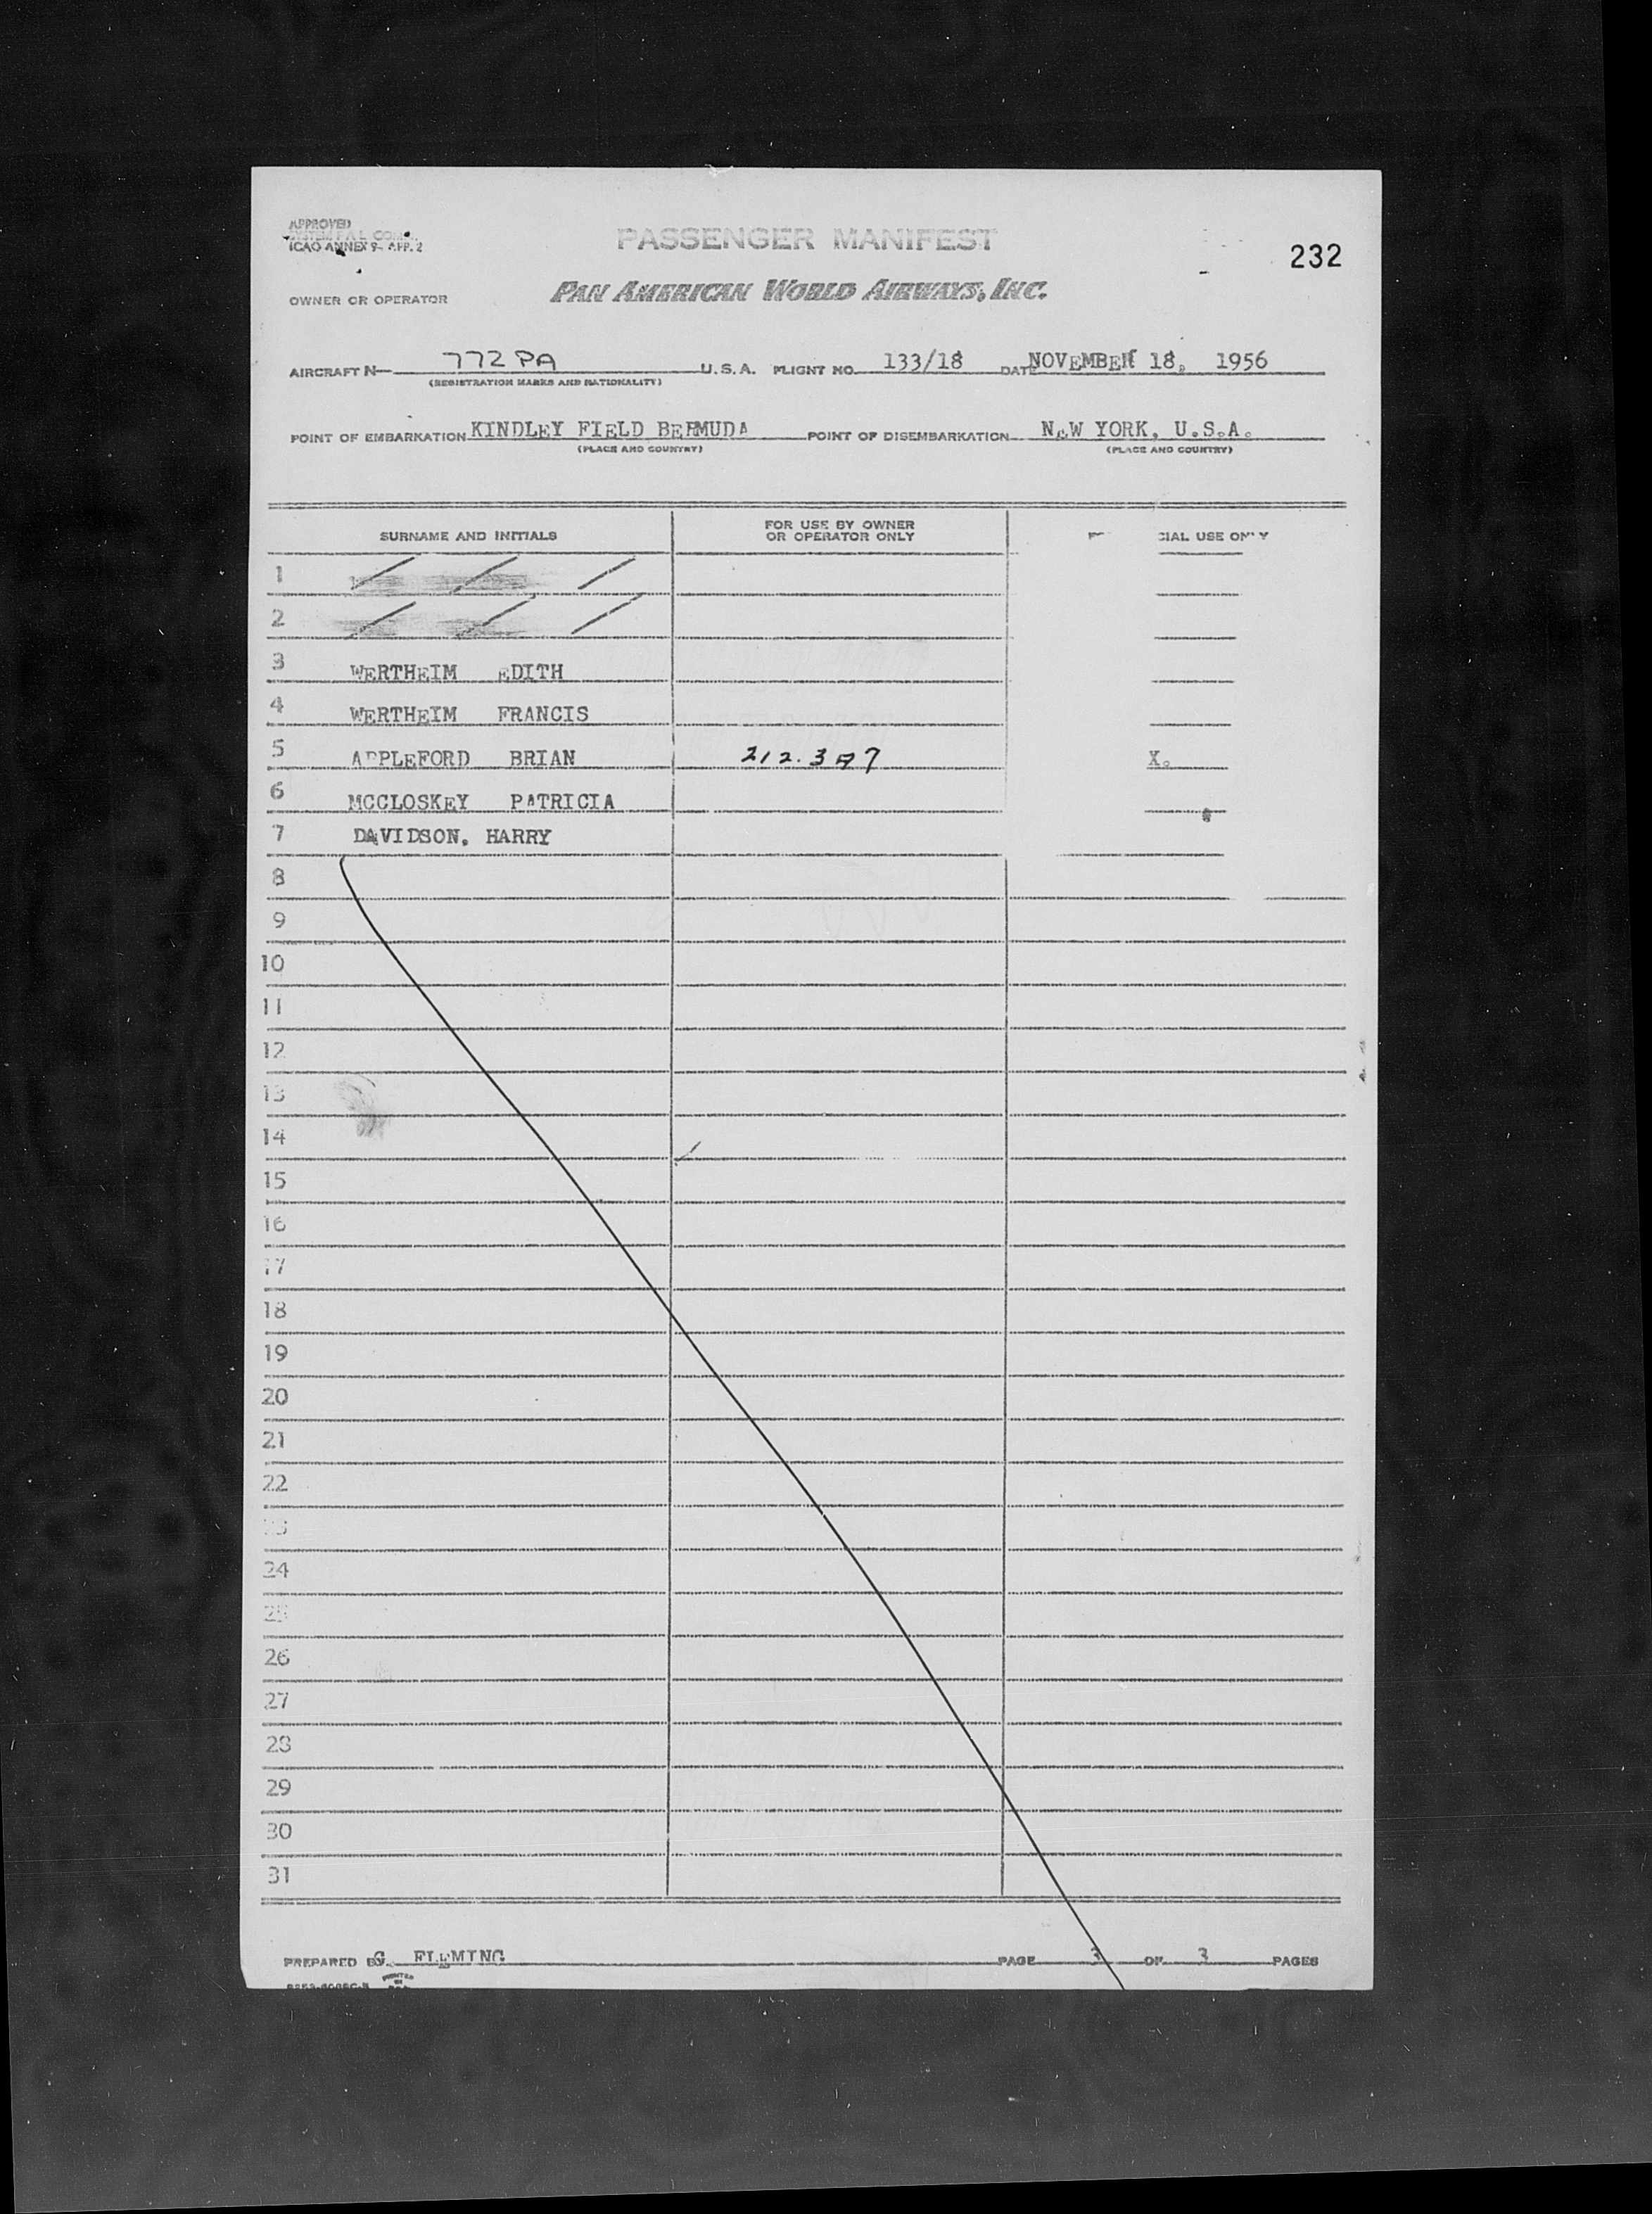 APPROVED
ICAO ANNEX 9- APP. 2
PASSENGER MANIFEST
232
OWNER OR OPERATOR PAN AMERICAN WORLD AIRWAYS, INC.
AIRCRAFT N— 772 PA U.S.A. FLIGHT NO. 133/18 DATE NOVEMBER 18, 1956
(REGISTRATION MARKS AND NATIONALITY)
POINT OF EMBARKATION KINDLEY FIELD BERMUDA POINT OF DISEMBARKATION NEW YORK, U.S.A.
(PLACE AND COUNTRY) (PLACE AND COUNTRY)
SURNAME AND INITIALS FOR USE BY OWNER OR OPERATOR ONLY CIAL USE ONLY
1
2
3 WERTHEIM EDITH
4 WERTHEIM FRANCIS
5 APPLEFORD BRIAN 212.3 A7 X.
6 MCCLOSKEY PATRICIA
7 DAVIDSON, HARRY
8
9
10
11
12
13
14
15
16
17
18
19
20
21
22
23
24
25
26
27
28
29
30
31
PREPARED BY G. FLEMING PAGE 3 OF 3 PAGES